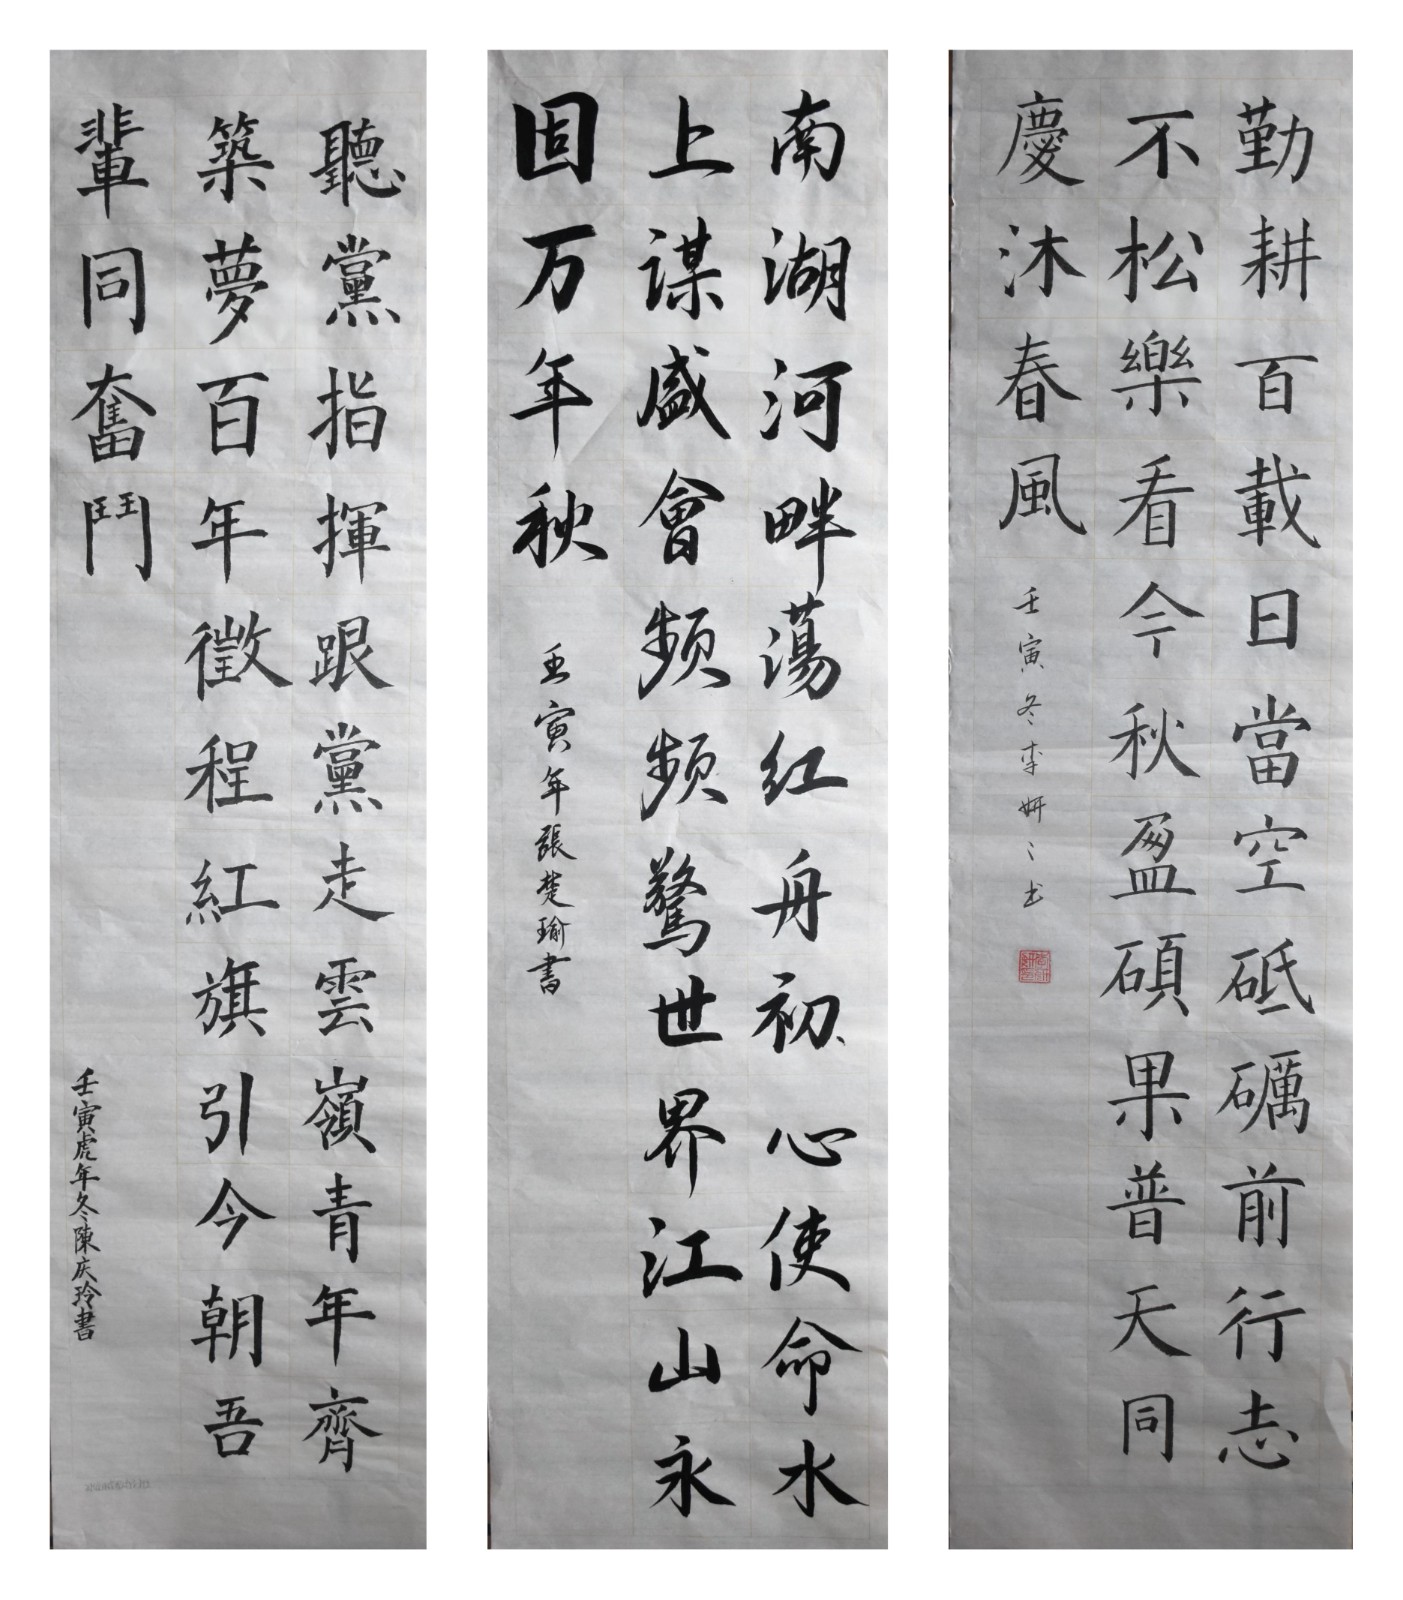 勤耕百載日當空砥礪前行志
不松樂看今秋盈碩果普天同
慶沐春風
壬寅冬李妍〻书
南湖河畔蕩红舟初心使命水
上谋盛會频频驚世界江山永
固万年秋
壬寅年張楚瑜書
聽黨指揮跟黨走雲嶺青年齊
築夢百年徵程紅旗引今朝吾
輩同奮鬥
壬寅虎年冬陳庆玲書